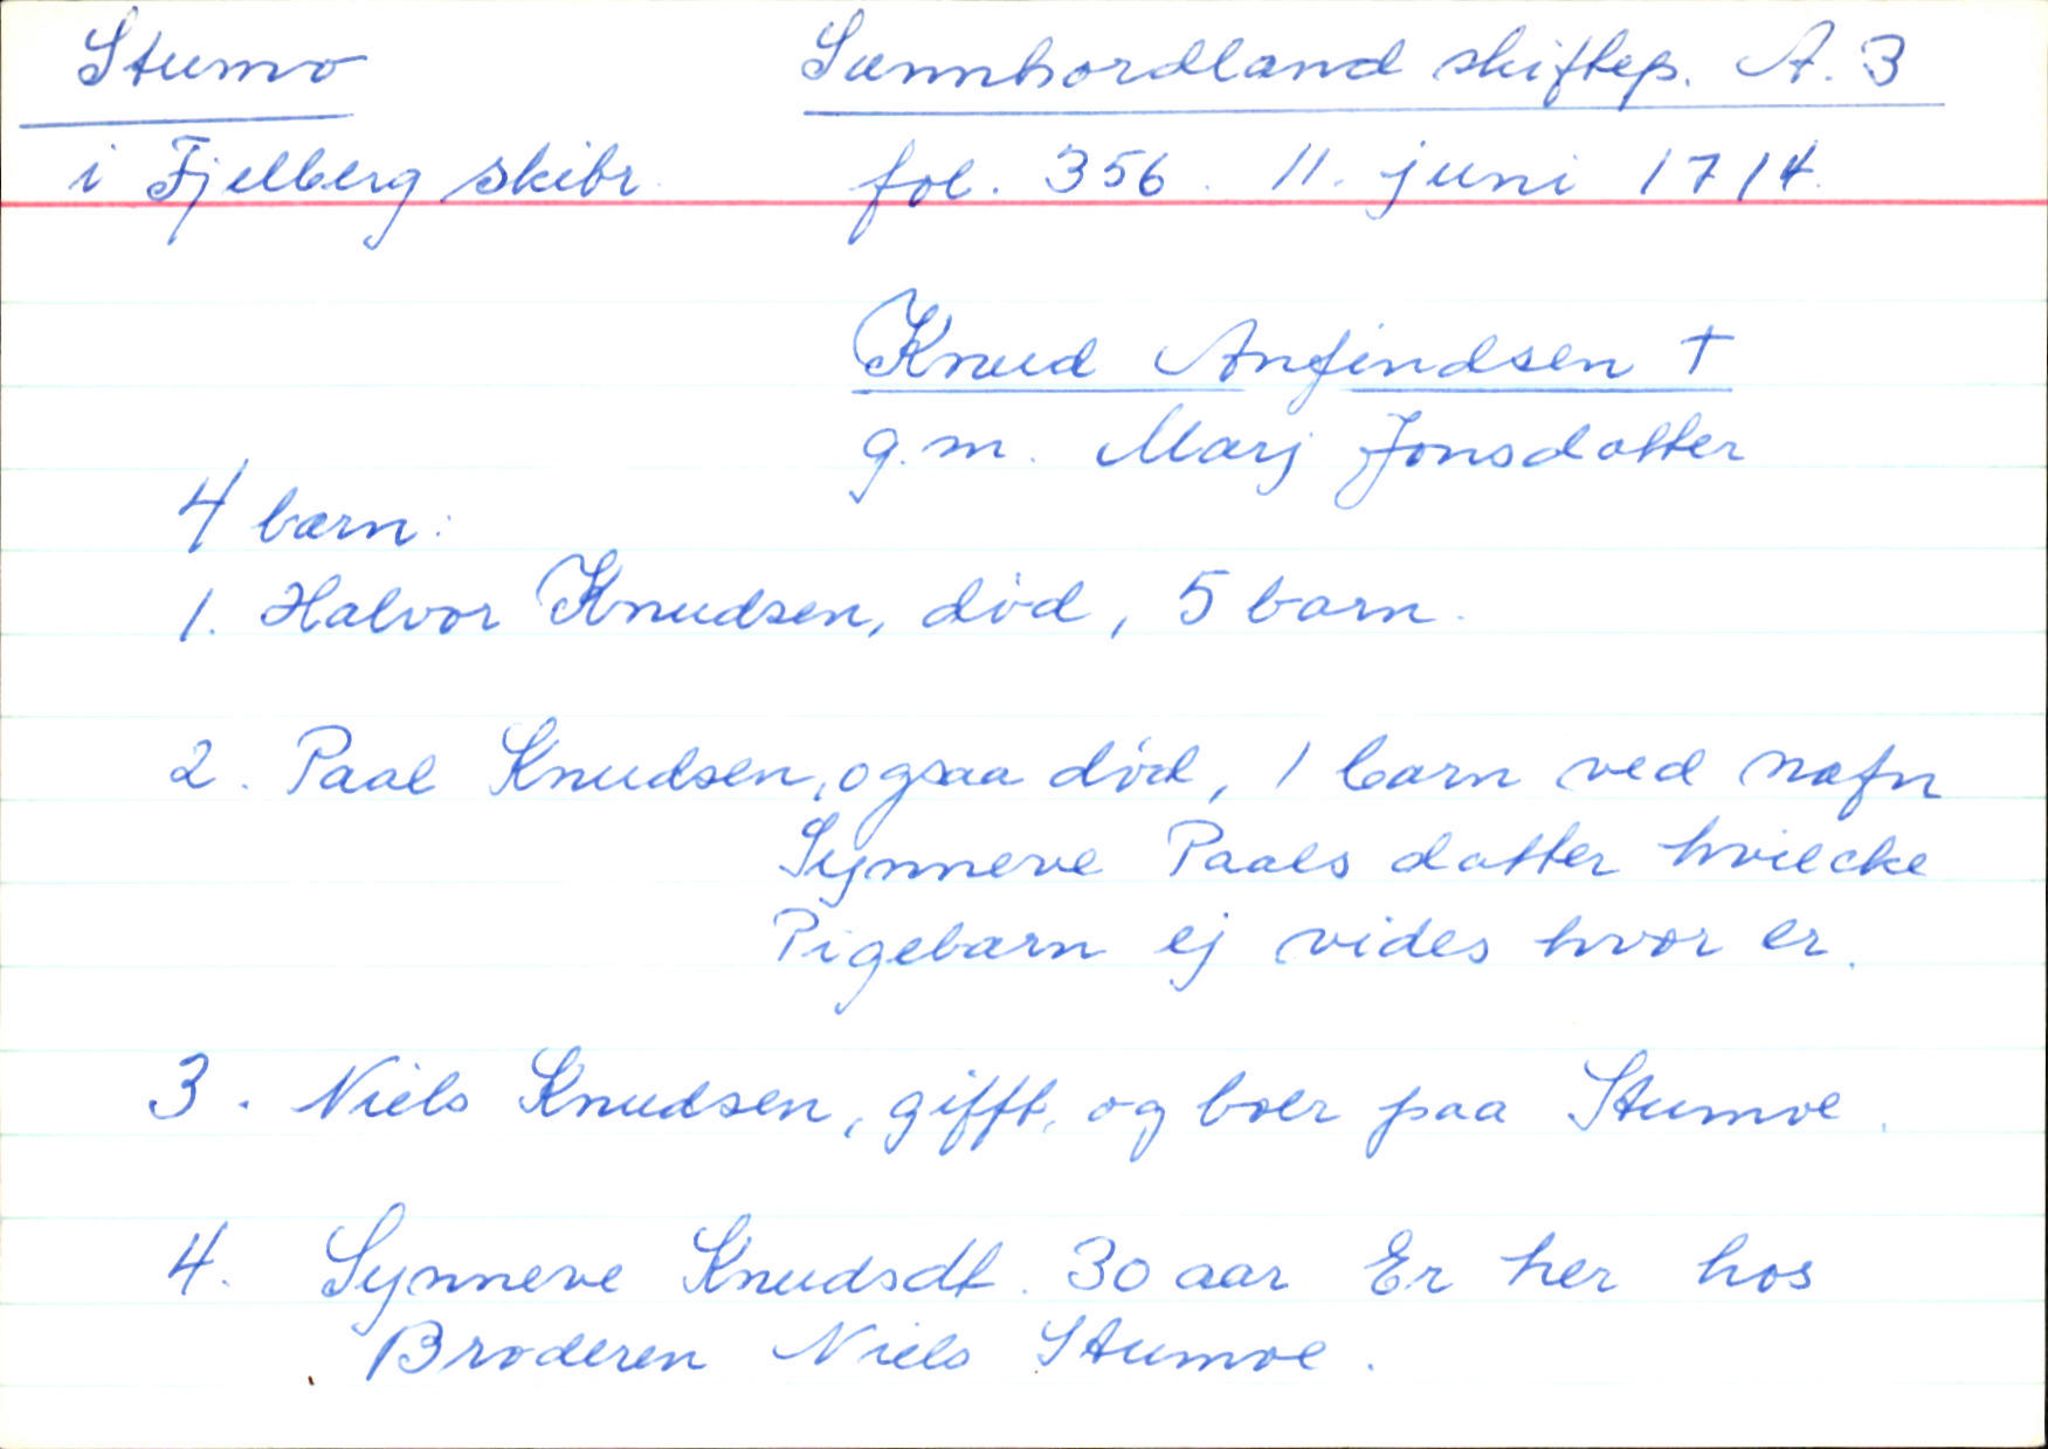 Stumo
Sunnhordland skiftep. A. 3
i Fjelberg skibr.
fol. 356. 11. juni 1714.
Knud Anfindsen †
g.m. Marj Jonsdatter
4 barn:
1. Halvor Knudsen, död, 5 barn.
2. Paal Knudsen, ogsaa död, 1 barn ved nafn
Synneve Paals datter hvilcke
Pigebarn ej vides hvor er.
3. Niels Knudsen, gifft, og boer paa Stumoe.
4. Synneve Knudsdt. 30 aar Er her hos
Broderen Niels Stumoe.